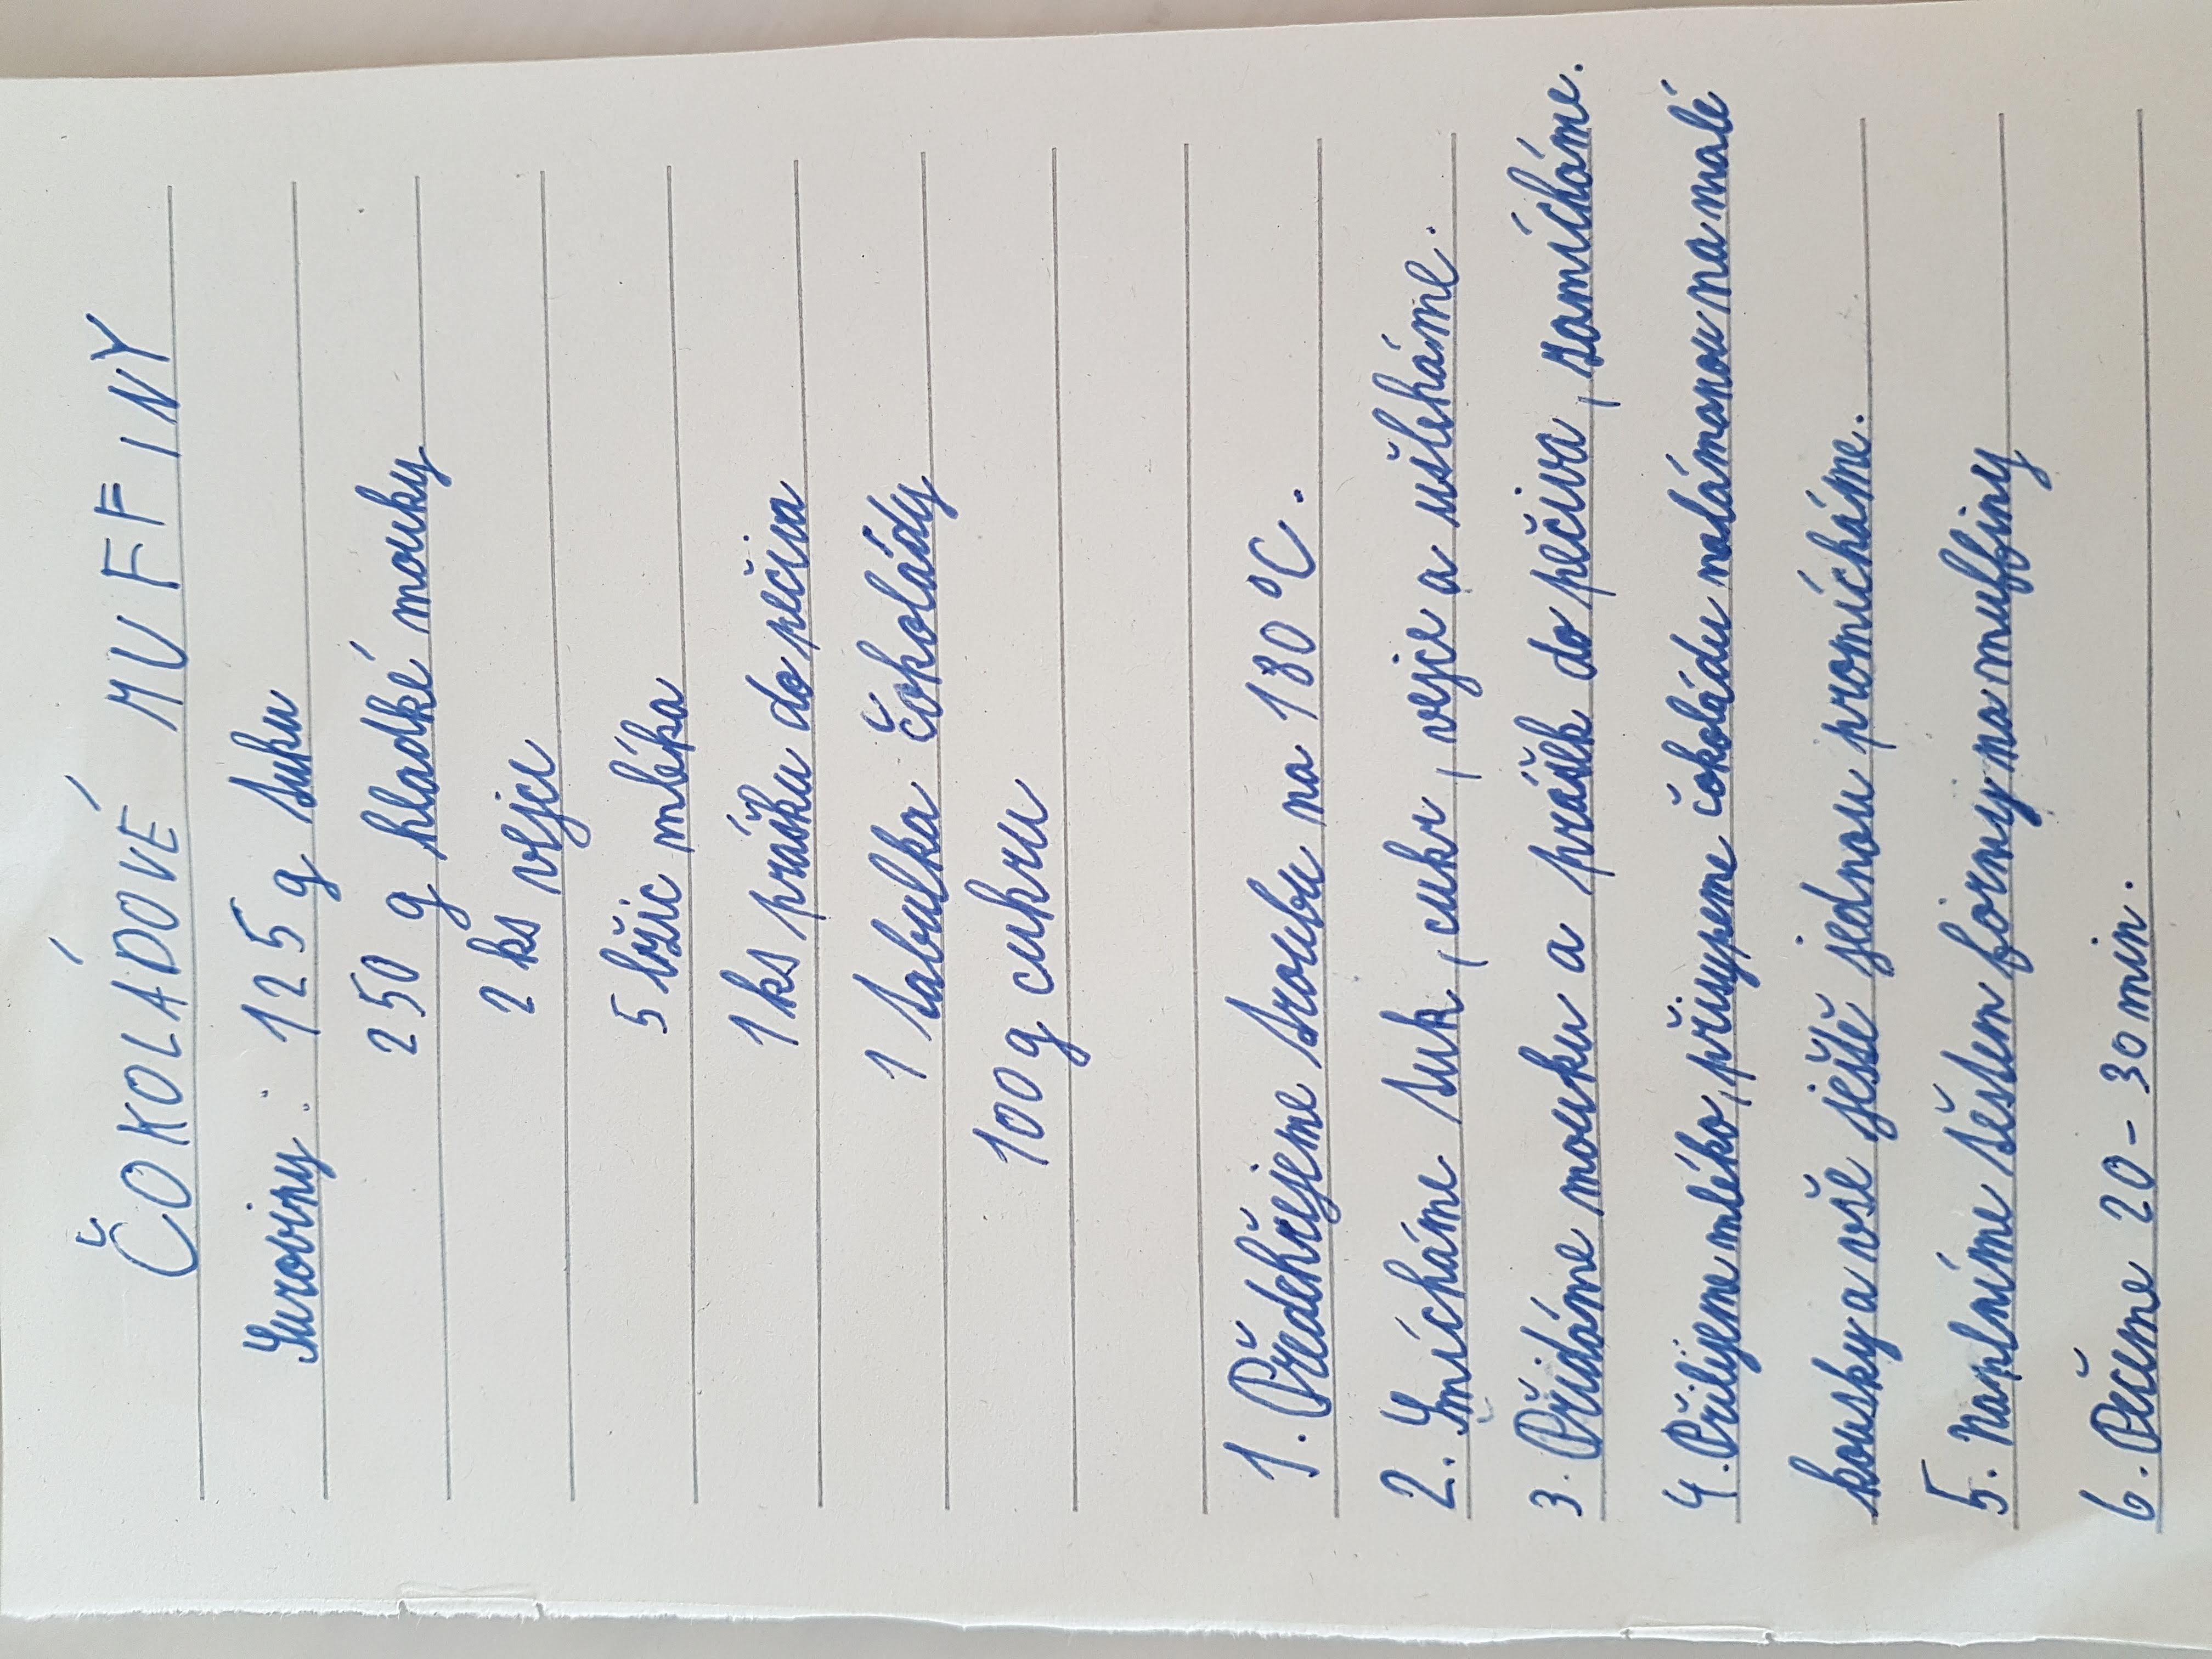 ČOKOLÁDOVÉ MUFFINY
Suroviny: 125 g tuku
250 g hladké mouky
2 ks vejce
5 lžic mléka
1 ks prášku do pečiva
1 tabulka čokolády
100 g cukru
1. Předehřejeme troubu na 180 °C.
2. Smícháme tuk, cukr, vejce a ušleháme.
3. Přidáme mouku a prášek do pečiva, zamícháme.
4. Přilijeme mléko, přisypeme čokoládu nalámanou na malé
kousky a vše ještě jednou promícháme.
5. Naplníme těstem formy na muffiny
6. Pečeme 20 - 30 min.